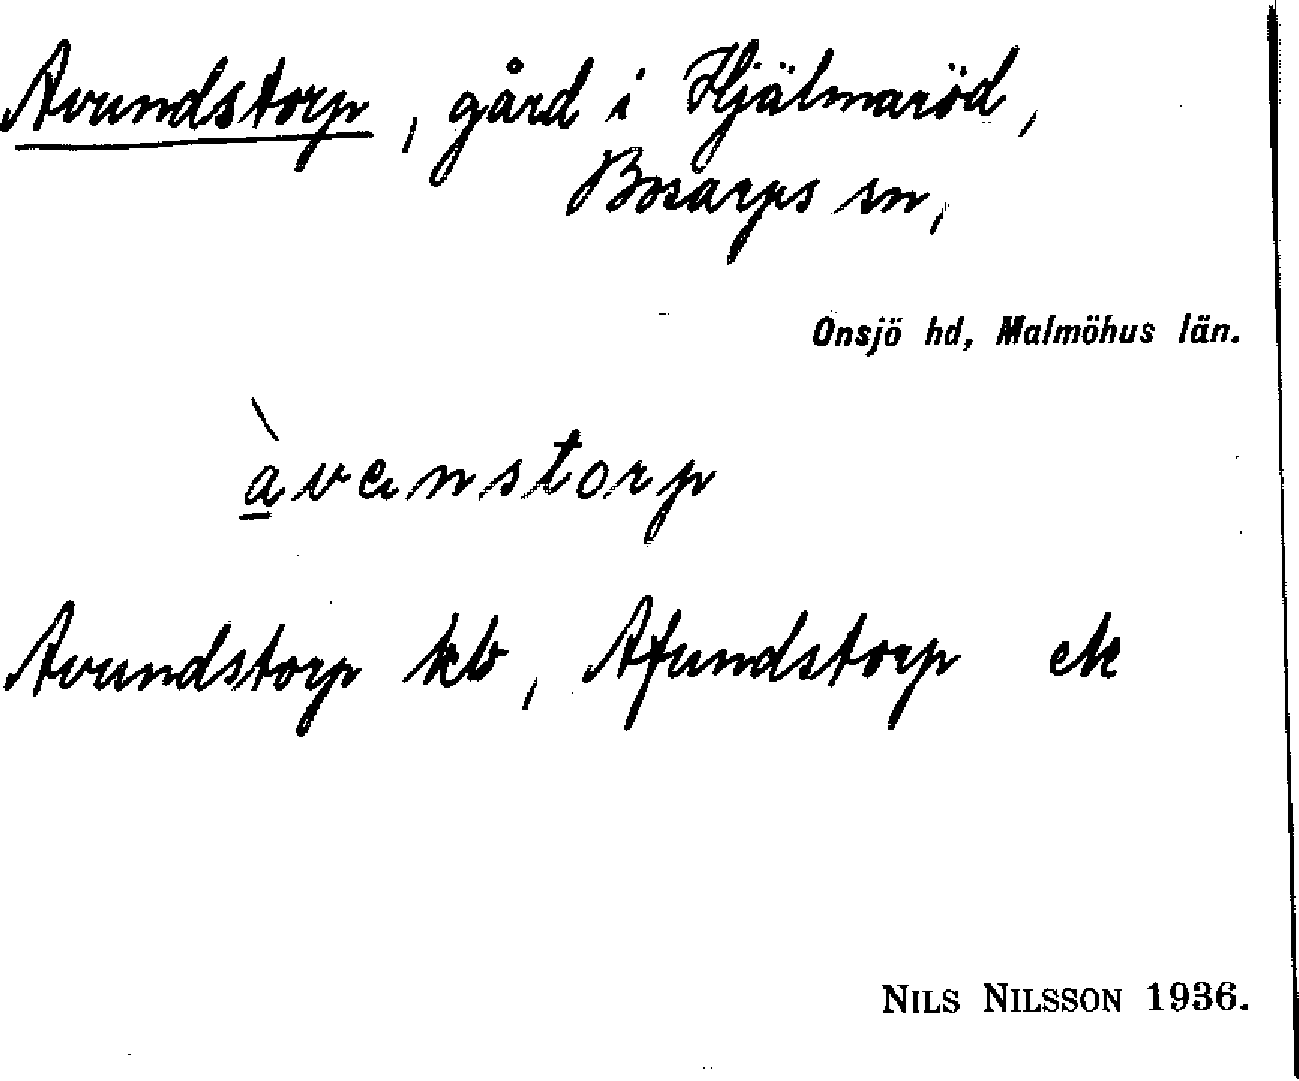 Avundstorp, gård i Hjälmaröd,
Bosarps sn,
Onsjö hd, Malmöhus län.
àvenstorp
Avundstorp kb, Afundstorp ek
NILS NILSSON 1936.